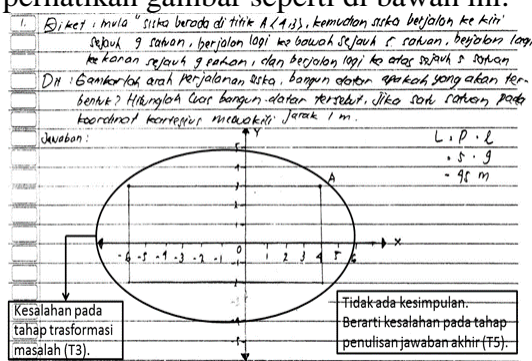 perhatikan gambar seperti di bawah ini.
1. Diket : mula" siska berada di titik A (4,3), kemudian siska berjalan ke kiri
sejauh 9 satuan, berjalan lagi ke bawah sejauh 5 satuan, berjalan lagi
ke kanan sejauh 9 satuan, dan berjalan lagi ke atas sejauh 5 satuan
Dit : Gambarlah arah perjalanan siska, bangun datar apakah yang akan ter-
bentuk? Hitunglah luas bangun datar tersebut, jika satu satuan pada
koordinat kartesius mewakili jarak 1 m.
Jawaban :
Y
L = P . l
= 5 . 9
= 45 m
A
X
-6 -5 -4 -3 -2 -1 0 1 2 3 4 5 6
Kesalahan pada
tahap trasformasi
masalah (T3).
Tidak ada kesimpulan.
Berarti kesalahan pada tahap
penulisan jawaban akhir (T5).